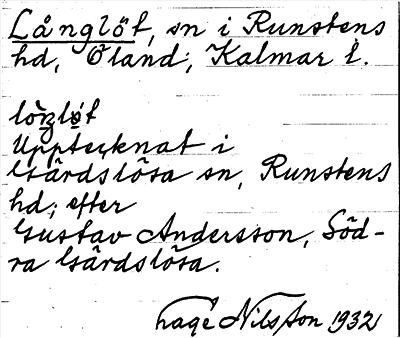 Långlöt, sn i Runstens
hd, Öland, Kalmar l.
Upptecknat i
Gärdslösa sn, Runstens
hd; efter
Gustav Andersson, Söd-
ra Gärdslösa.
Hage Nilsson 1932